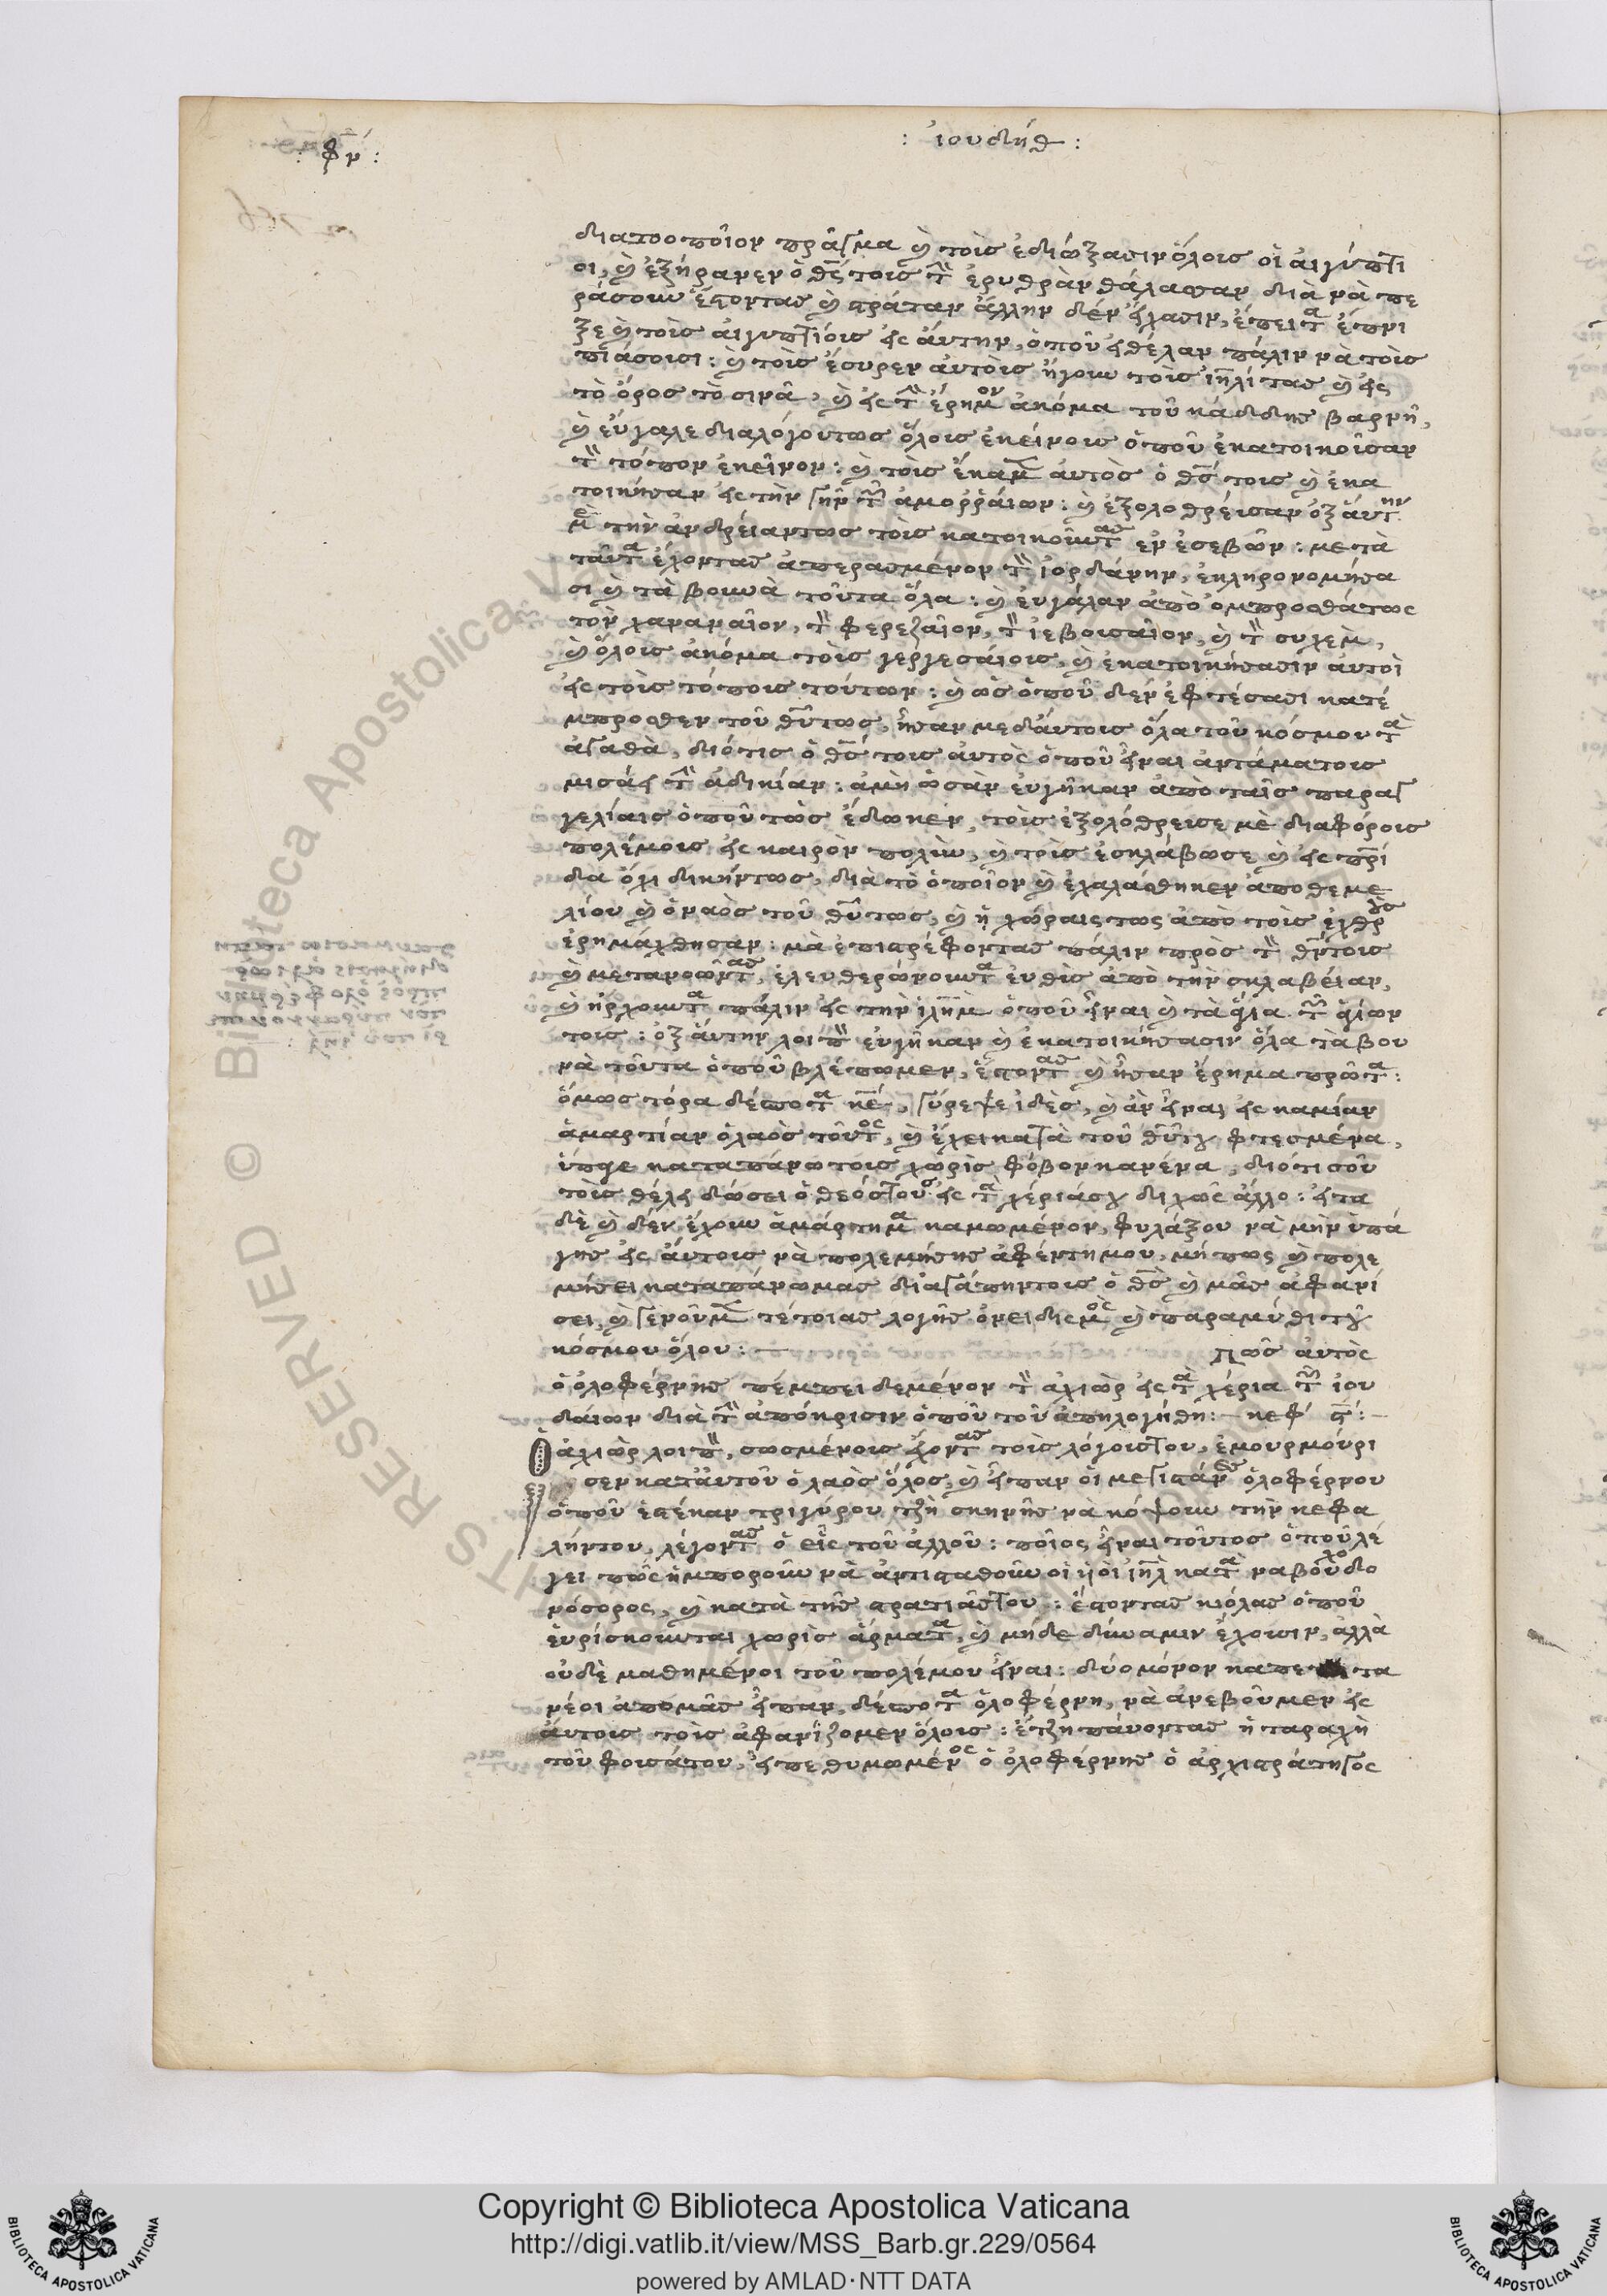 : φν :
: ἰουδήθ :
διατοοποῖον πρᾶγμα καὶ τοὶς ἐδιώξασιν ὅλοις οἱ ἀιγύπτι
οι, καὶ ἐξήρανεν ὁ θς τοις τὴν ἐρυθρὰν θάλασσαν διὰ νὰ πε
ράσουν ἔστοντας καὶ στράταν ἄλλην δὲν εἴχασιν, ἔπειτα ἔπνι
ξε καὶ τοὶς ἀιγυπτίοις εἰς ἄυτην, ὁποῦ εἴθελαν πάλιν νὰ τοὶς
πιάσοισι : καὶ τοὶς ἔσυρεν ἀυτοὶς ἤγουν τοὶς ἰηλίτας καὶ εἰς
τὸ ὄρος τὸ σινᾶ, καὶ εἰς τὴν ἔρημον ἀκόμα τοῦ κάδδης βαρνῆ,
καὶ ἐύγαλε διαλόγουτως ὅλοις ἐκείνοις ὁποῦ ἐκατοικοῖσαν
τὸν τόπον ἐκεῖνον : καὶ τοὶς ἔκαμεν ἀυτὸς ὁ θς τοις καὶ ἐκα
τοικήσαν εἰς τὴν γῆν τῶν ἀμορῥάιων : καὶ ἐξολοθρέισαν ὀξ ἄυτην
μὲ τὴν ἀνδρείαντως τοὶς κατοικοῦντας ἐν ἐσεβῶν : μετὰ
ταῦτα ἔχοντας ἀπερασμένον τὸν ἰορδάνην, ἐκληρονομήσα
σι καὶ τὰ βουνὰ τοῦτα ὅλα : καὶ ἐυγάλαν ἀπὸ ὀμπροσθάτως
τὸν χαναναῖον, τὸν φερεζαῖον, τὸν ἰεβοισαῖον, καὶ τὸν συχεμ,
καὶ ὅλοις ἀκόμα τοὶς γεργεσάιοις, καὶ ἐκατοικήσασιν ἀυτοὶ
εἰς τοὶς τόποις τούτων : καὶ ὡς ὁποῦ δὲν ἐφτέσασι κατέ
μπροσθεν τοῦ θῦτως, ἦσαν μεδάυτοις ὅλα τοῦ κόσμου τὰ
ἀγαθὰ, διότις ὁ θς τοις ἀυτὸς ὁποῦ εἶναι ἀντάματοις
μισάει τὴν ἀδικίαν : ἀμὴ ὡσὰν ἐυγῆκαν ἀπὸ ταῖς παραγ
γελίαις ὁποῦ τὼς ἔδωκεν, τοὶς ἐξολόθρεισε μὲ διαφόροις
πολέμοις εἰς καιρὸν πολὺν, καὶ τοὶς ἐσκλάβωσε καὶ εἰς πρί
δα ὄχι δικήντως, διὰ τὸ ὁποῖον καὶ ἐχαλάσθηκεν ἀποθεμε
λίου καὶ ὁ ναὸς τοῦ θῦτως, καὶ ἡ χώραις τως ἀπὸ τοὶς ἐχθροὺς
ἐρημάχθησαν : μὰ ἐπιστρέφοντας πάλιν πρὸς τὸν θντοις
καὶ μετανοῶντας, ἐλευθερώνουντα ἐυθὶς ἀπὸ τὴν σκλαβείαν,
καὶ ἤρχουντα πάλιν εἰς τὴν ἱλημ ὁποῦ εἶναι καὶ τὰ ἅγια τῶν ἁγίων
τοις : ὀξ ἄυτην λοιπὸν ἐυγῆκαν καὶ ἐκατοικήσασιν ὅλα τὰ βου
νὰ τοῦτα ὁποῦ βλέπωμεν, ἔστοντας καὶ ἦσαν ἔρημα πρῶτα :
ὅμως τόρα δέσποτα κε, γύρεψε ἰδὲς, καὶ ἂν εἶναι εἰς καμίαν
ἁμαρτίαν ὁ λαὸς τοῦτος, καὶ ἔχει καγὰ τοῦ θῦτου φτεσμένα,
ὕπαε καταπάνω τοις χωρὶς φόβον κανένα, διότι σοῦ
τοὶς θέλει δώσει ὁ θεόςτους εἰς τὰ χέριάσου διχῶς ἄλλο : εἴτα
δὲ καὶ δὲν ἔχουν ἁμάρτημα καμωμένον, φυλάξου νὰ μὴν ὑπά
γης εἰς ἄυτοις νὰ πολεμήσης ἀφέντη μου, μήπως καὶ πολε
μήσει καταπάνωμας διαγάπηντοις ὁ θς καὶ μᾶς ἀφανί
σει, καὶ γενοῦμεν τέτοιας λογῆς ὀνειδισμὸς καὶ παραμύθι τοῦ
κόσμου ὅλου : — Πῶς ἀυτὸς
ὁ ὀλοφέρνης πέμπει δεμένον τὸν ἀχιὼρ εἰς τὰ χέρια τῶν ἰου
δάιων διὰ τὴν ἀπόκρισιν ὁποῦ τοῦ ἀπηλογήθη : — κεφ ς : —
Ὁ ἀχιὼρ λοιπὸν, σωσμένοις ἔχοντας τοὶς λόγοιςτου, ἐμουρμούρι
σεν κατ ἀυτοῦ ὁ λαὸς ὅλος, καὶ εἶπαν ὁι μεγιστάνες ὀλοφέρνου
ὁποῦ ἐστέκαν τριγύρου τζὴ σκηνῆς νὰ κόψουν τὴν κεφα
λήντου, λέγοντας ὁ εἷς τοῦ ἀλλοῦ : ποῖος εἶναι τοῦτος ὁποῦ λέ
γει πῶς ἠμποροῦν νὰ ἀντισταθοῦν οἱ ὑιὸι ἰηλ κατὰ ναβουχοδο
νόσορος, καὶ κατὰ τῆς στρατιᾶςτου : ἔστοντας κιόλας ὁποῦ
ἐυρίσκουνται χωρὶς ἄρματα, καὶ μήδε δύναμιν ἔχοισιν, ἀλλὰ
οὐδὲ μαθημένοι τοῦ πολέμου εἶναι : δύο μόνον καπετα
νέοι ἀπομᾶς εἶπαν, δέσποτα ὀλοφέρνη, νὰ ἀνεβοῦμεν εἰς
ἄυτοις τοὶς ἀφανίζομεν ὅλοις : ἔτζη πάυοντας ἡ ταραχὴ
τοῦ φοισάτου, εἶπε θυμωμένος ὁ ὀλοφέρνης ὁ ἀρχιστράτηγος
Copyright © Biblioteca Apostolica Vaticana
http://digi.vatlib.it/view/MSS_Barb.gr.229/0564
powered by AMLAD·NTT DATA
BIBLIOTECA APOSTOLICA VATICANA
BIBLIOTECA APOSTOLICA VATICANA